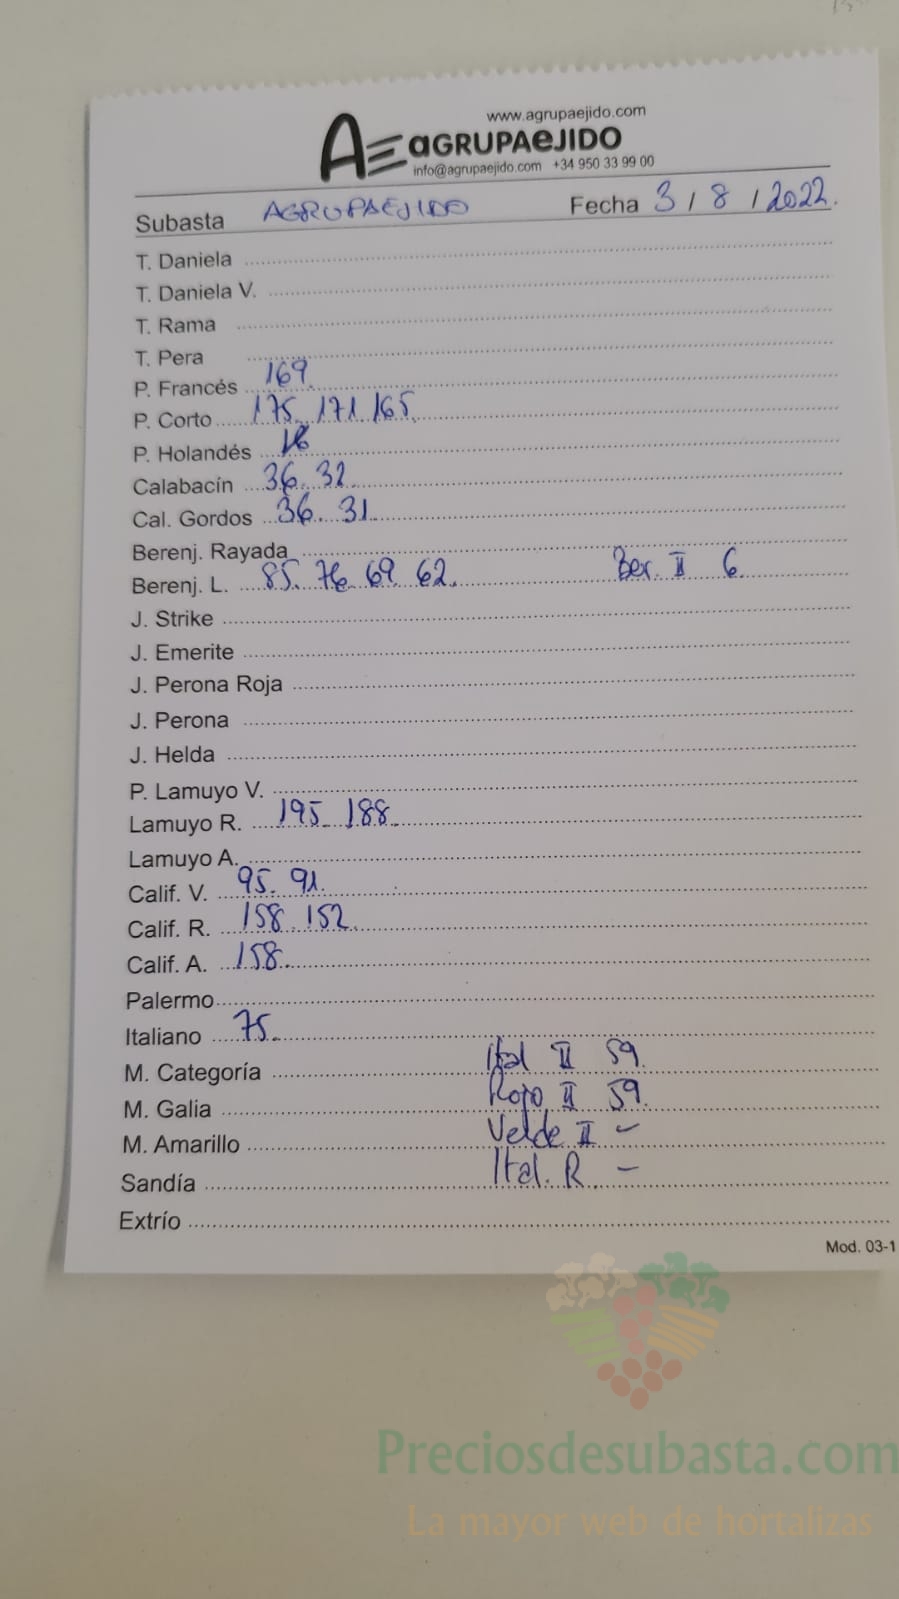 www.agrupaejido.com
AE aGRUPAeJIDO
info@agrupaejido.com +34 950 33 99 00
Subasta AGRUPAEJIDO Fecha 3 / 8 / 2022.
T. Daniela
T. Daniela V.
T. Rama
T. Pera
P. Francés 169.
P. Corto 175. 171. 165.
P. Holandés
Calabacín 36. 32.
Cal. Gordos 36. 31.
Berenj. Rayada
Berenj. L. 85. 76. 69. 62. Ber. II 6.
J. Strike
J. Emerite
J. Perona Roja
J. Perona
J. Helda
P. Lamuyo V.
Lamuyo R. 195. 188.
Lamuyo A.
Calif. V. 95. 91.
Calif. R. 158. 152.
Calif. A. 158.
Palermo
Italiano 75.
M. Categoría Ital II 59.
M. Galia Rojo II 59.
M. Amarillo Verde II -
Sandía Ital. R. -
Extrío
Mod. 03-1
Preciosdesubasta.com
La mayor web de hortalizas